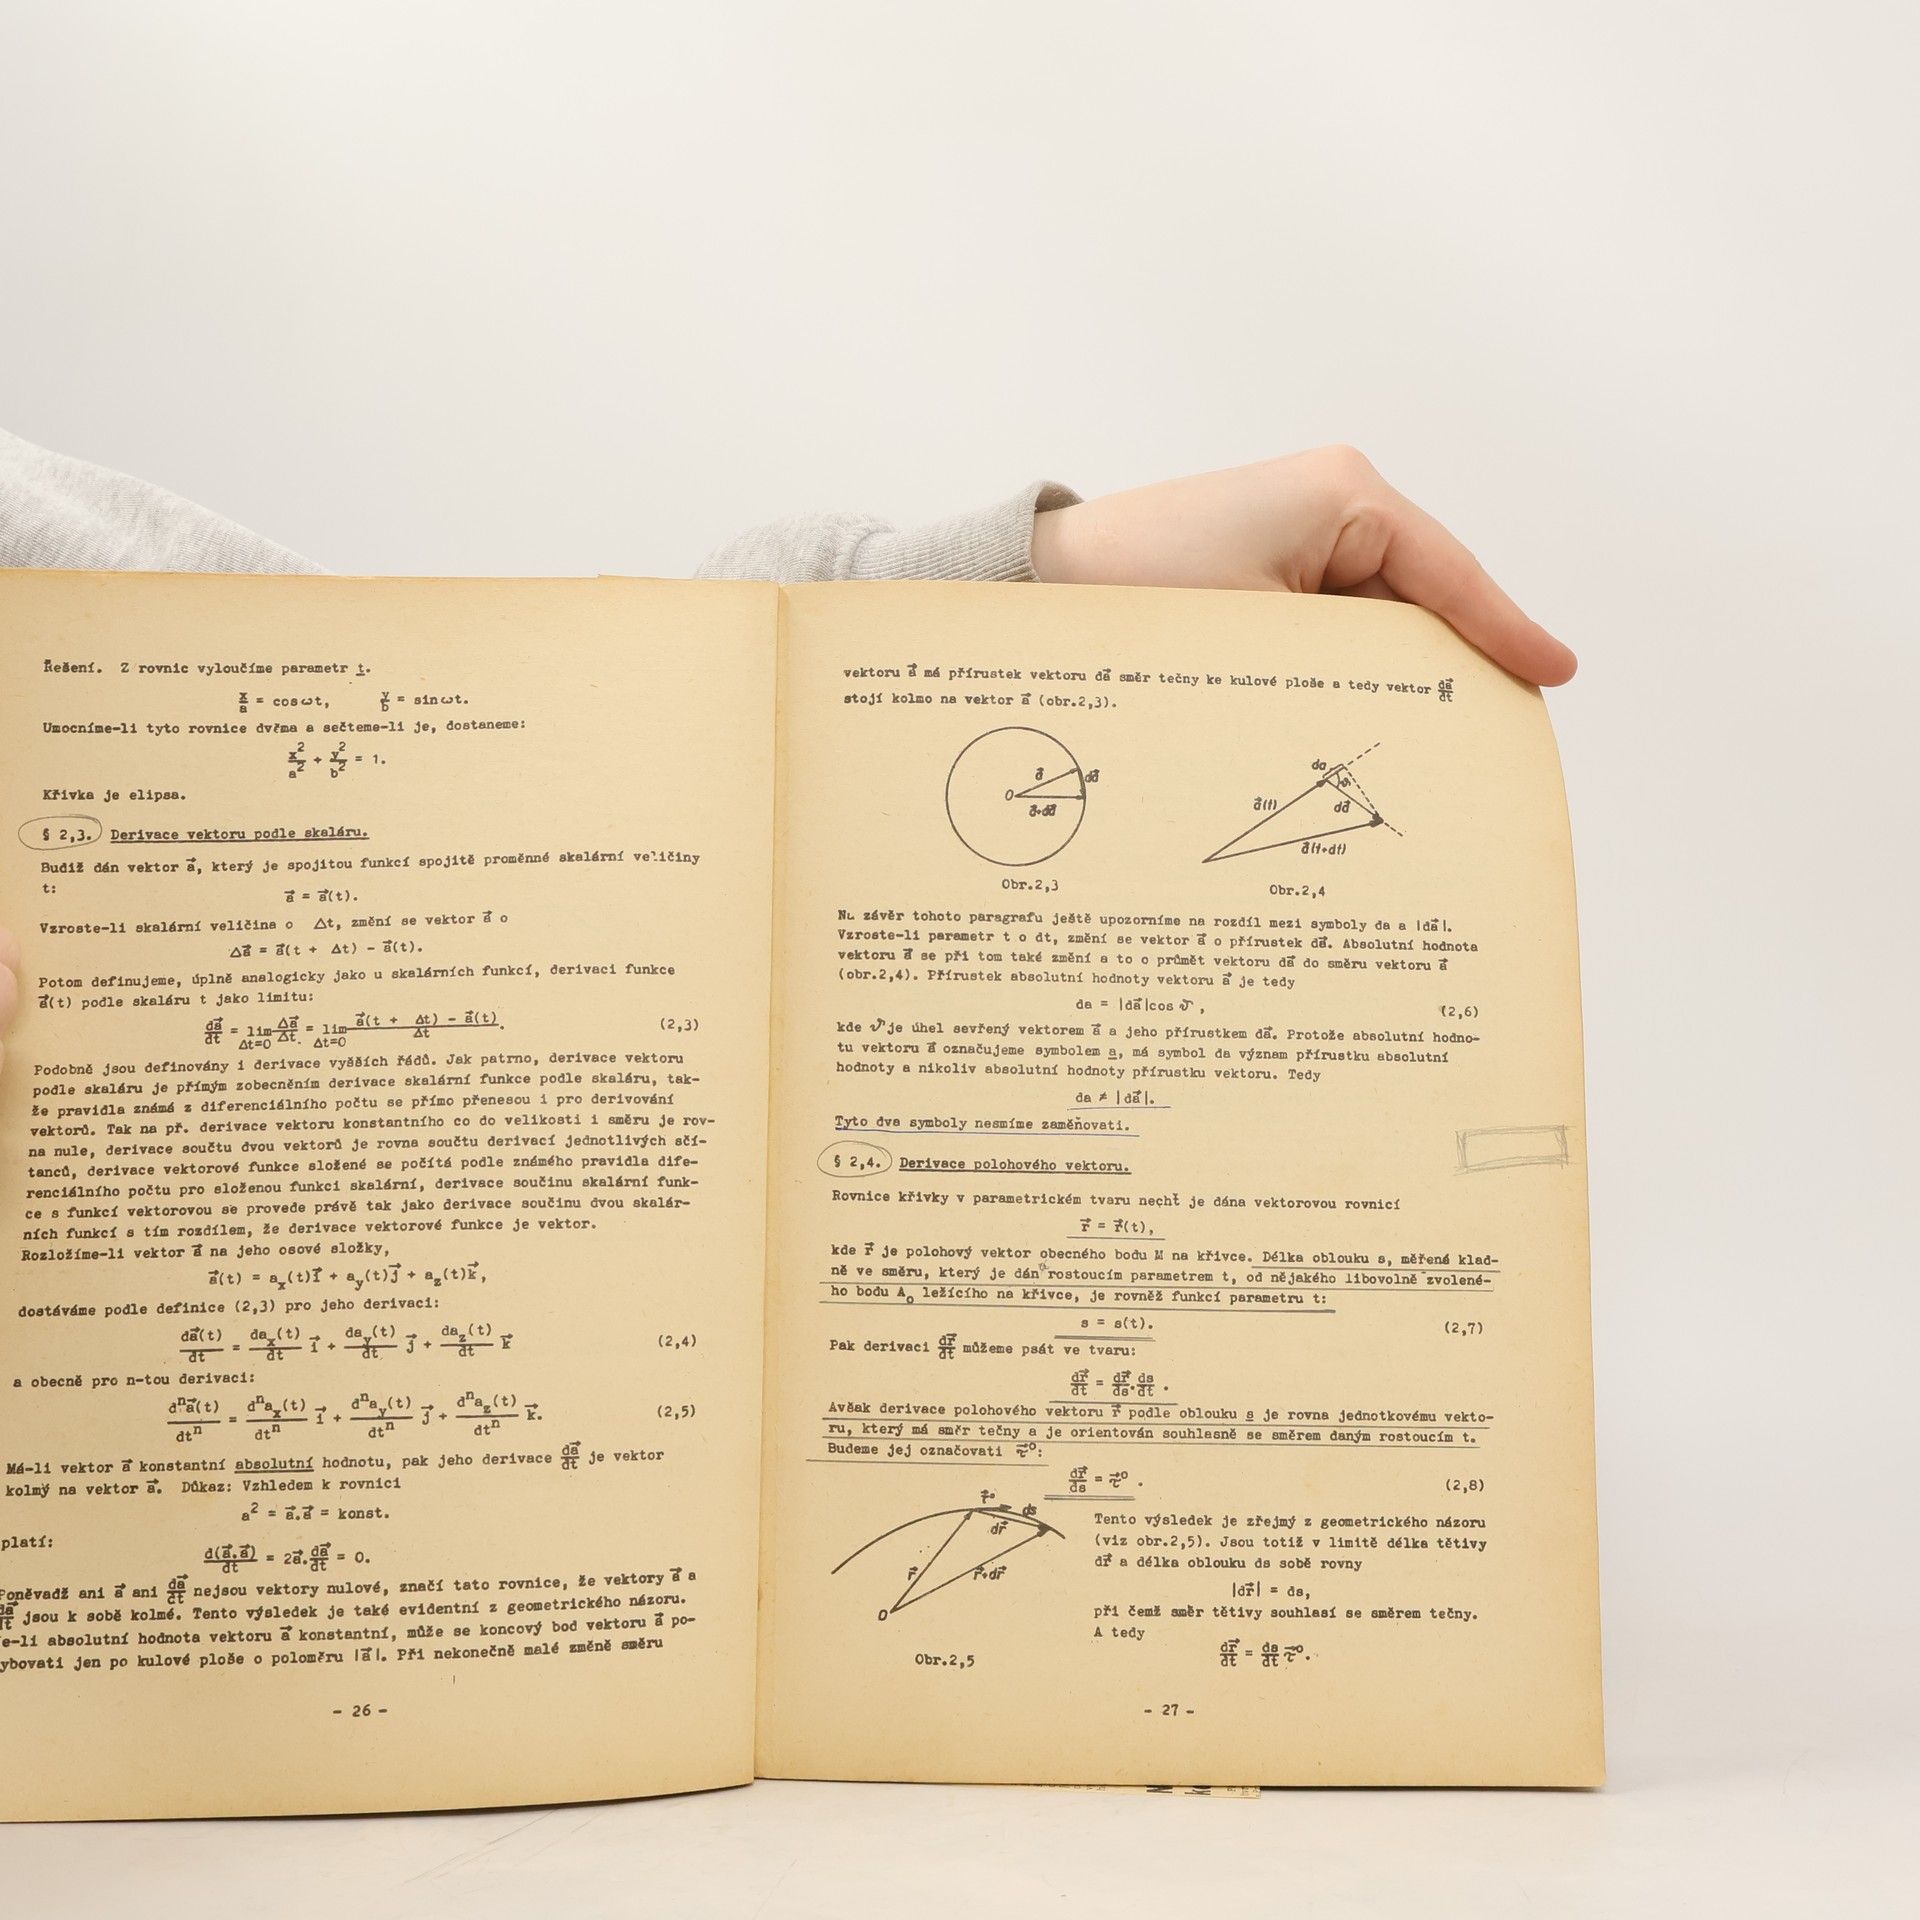 Řešení. Z rovnic vyloučíme parametr t.
x/a = cosωt, y/b = sinωt.
Umocníme-li tyto rovnice dvěma a sečteme-li je, dostaneme:
x²/a² + y²/b² = 1.
Křivka je elipsa.
§ 2,3. Derivace vektoru podle skaláru.
Budiž dán vektor a⃗, který je spojitou funkcí spojitě proměnné skalární veličiny
t:
a⃗ = a⃗(t).
Vzroste-li skalární veličina o Δt, změní se vektor a⃗ o
Δa⃗ = a⃗(t + Δt) - a⃗(t).
Potom definujeme, úplně analogicky jako u skalárních funkcí, derivaci funkce
a⃗(t) podle skaláru t jako limitu:
da⃗/dt = lim Δt=0 Δa⃗/Δt = lim Δt=0 (a⃗(t + Δt) - a⃗(t))/Δt. (2,3)
Podobně jsou definovány i derivace vyšších řádů. Jak patrno, derivace vektoru
podle skaláru je přímým zobecněním derivace skalární funkce podle skaláru, tak-
že pravidla známá z diferenciálního počtu se přímo přenesou i pro derivování
vektorů. Tak na př. derivace vektoru konstantního co do velikosti i směru je rov-
na nule, derivace součtu dvou vektorů je rovna součtu derivací jednotlivých sčí-
tanců, derivace vektorové funkce složené se počítá podle známého pravidla dife-
renciálního počtu pro složenou funkci skalární, derivace součinu skalární funk-
ce s funkcí vektorovou se provede právě tak jako derivace součinu dvou skalár-
ních funkcí s tím rozdílem, že derivace vektorové funkce je vektor.
Rozložíme-li vektor a⃗ na jeho osové složky,
a⃗(t) = aₓ(t)i⃗ + a_y(t)j⃗ + a_z(t)k⃗,
dostáváme podle definice (2,3) pro jeho derivaci:
da⃗(t)/dt = daₓ(t)/dt i⃗ + da_y(t)/dt j⃗ + da_z(t)/dt k⃗ (2,4)
a obecně pro n-tou derivaci:
dⁿa⃗(t)/dtⁿ = dⁿaₓ(t)/dtⁿ i⃗ + dⁿa_y(t)/dtⁿ j⃗ + dⁿa_z(t)/dtⁿ k⃗. (2,5)
Má-li vektor a⃗ konstantní absolutní hodnotu, pak jeho derivace da⃗/dt je vektor
kolmý na vektor a⃗. Důkaz: Vzhledem k rovnici
a² = a⃗.a⃗ = konst.
platí:
d(a⃗.a⃗)/dt = 2a⃗.da⃗/dt = 0.
Poněvadž ani a⃗ ani da⃗/dt nejsou vektory nulové, značí tato rovnice, že vektory a⃗ a
da⃗/dt jsou k sobě kolmé. Tento výsledek je také evidentní z geometrického názoru.
e-li absolutní hodnota vektoru a⃗ konstantní, může se koncový bod vektoru a⃗ po-
ybovati jen po kulové ploše o poloměru |a⃗|. Při nekonečně malé změně směru
- 26 -
vektoru a⃗ má přírustek vektoru da⃗ směr tečny ke kulové ploše a tedy vektor da⃗/dt
stojí kolmo na vektor a⃗ (obr.2,3).
O a⃗ da⃗ a⃗+da⃗
a⃗(t) da ϑ da⃗ a⃗(t+dt)
Obr.2,3 Obr.2,4
Na závěr tohoto paragrafu ještě upozorníme na rozdíl mezi symboly da a |da⃗|.
Vzroste-li parametr t o dt, změní se vektor a⃗ o přírustek da⃗. Absolutní hodnota
vektoru a⃗ se při tom také změní a to o průmět vektoru da⃗ do směru vektoru a⃗
(obr.2,4). Přírustek absolutní hodnoty vektoru a⃗ je tedy
da = |da⃗|cos ϑ, (2,6)
kde ϑ je úhel sevřený vektorem a⃗ a jeho přírustkem da⃗. Protože absolutní hodno-
tu vektoru a⃗ označujeme symbolem a, má symbol da význam přírustku absolutní
hodnoty a nikoliv absolutní hodnoty přírustku vektoru. Tedy
da ≠ |da⃗|.
Tyto dva symboly nesmíme zaměňovati.
§ 2,4. Derivace polohového vektoru.
Rovnice křivky v parametrickém tvaru nechť je dána vektorovou rovnicí
r⃗ = r⃗(t),
kde r⃗ je polohový vektor obecného bodu M na křivce. Délka oblouku s, měřená klad-
ně ve směru, který je dán rostoucím parametrem t, od nějakého libovolně zvolené-
ho bodu A₀ ležícího na křivce, je rovněž funkcí parametru t:
s = s(t). (2,7)
Pak derivaci dr⃗/dt můžeme psát ve tvaru:
dr⃗/dt = dr⃗/ds.ds/dt.
Avšak derivace polohového vektoru r⃗ podle oblouku s je rovna jednotkovému vekto-
ru, který má směr tečny a je orientován souhlasně se směrem daným rostoucím t.
Budeme jej označovati τ⃗⁰:
dr⃗/ds = τ⃗⁰. (2,8)
τ⃗⁰ ds dr⃗ r⃗ r⃗+dr⃗ O
Obr.2,5
Tento výsledek je zřejmý z geometrického názoru
(viz obr.2,5). Jsou totiž v limitě délka tětivy
dr⃗ a délka oblouku ds sobě rovny
|dr⃗| = ds,
při čemž směr tětivy souhlasí se směrem tečny.
A tedy
dr⃗/dt = ds/dt τ⃗⁰.
- 27 -